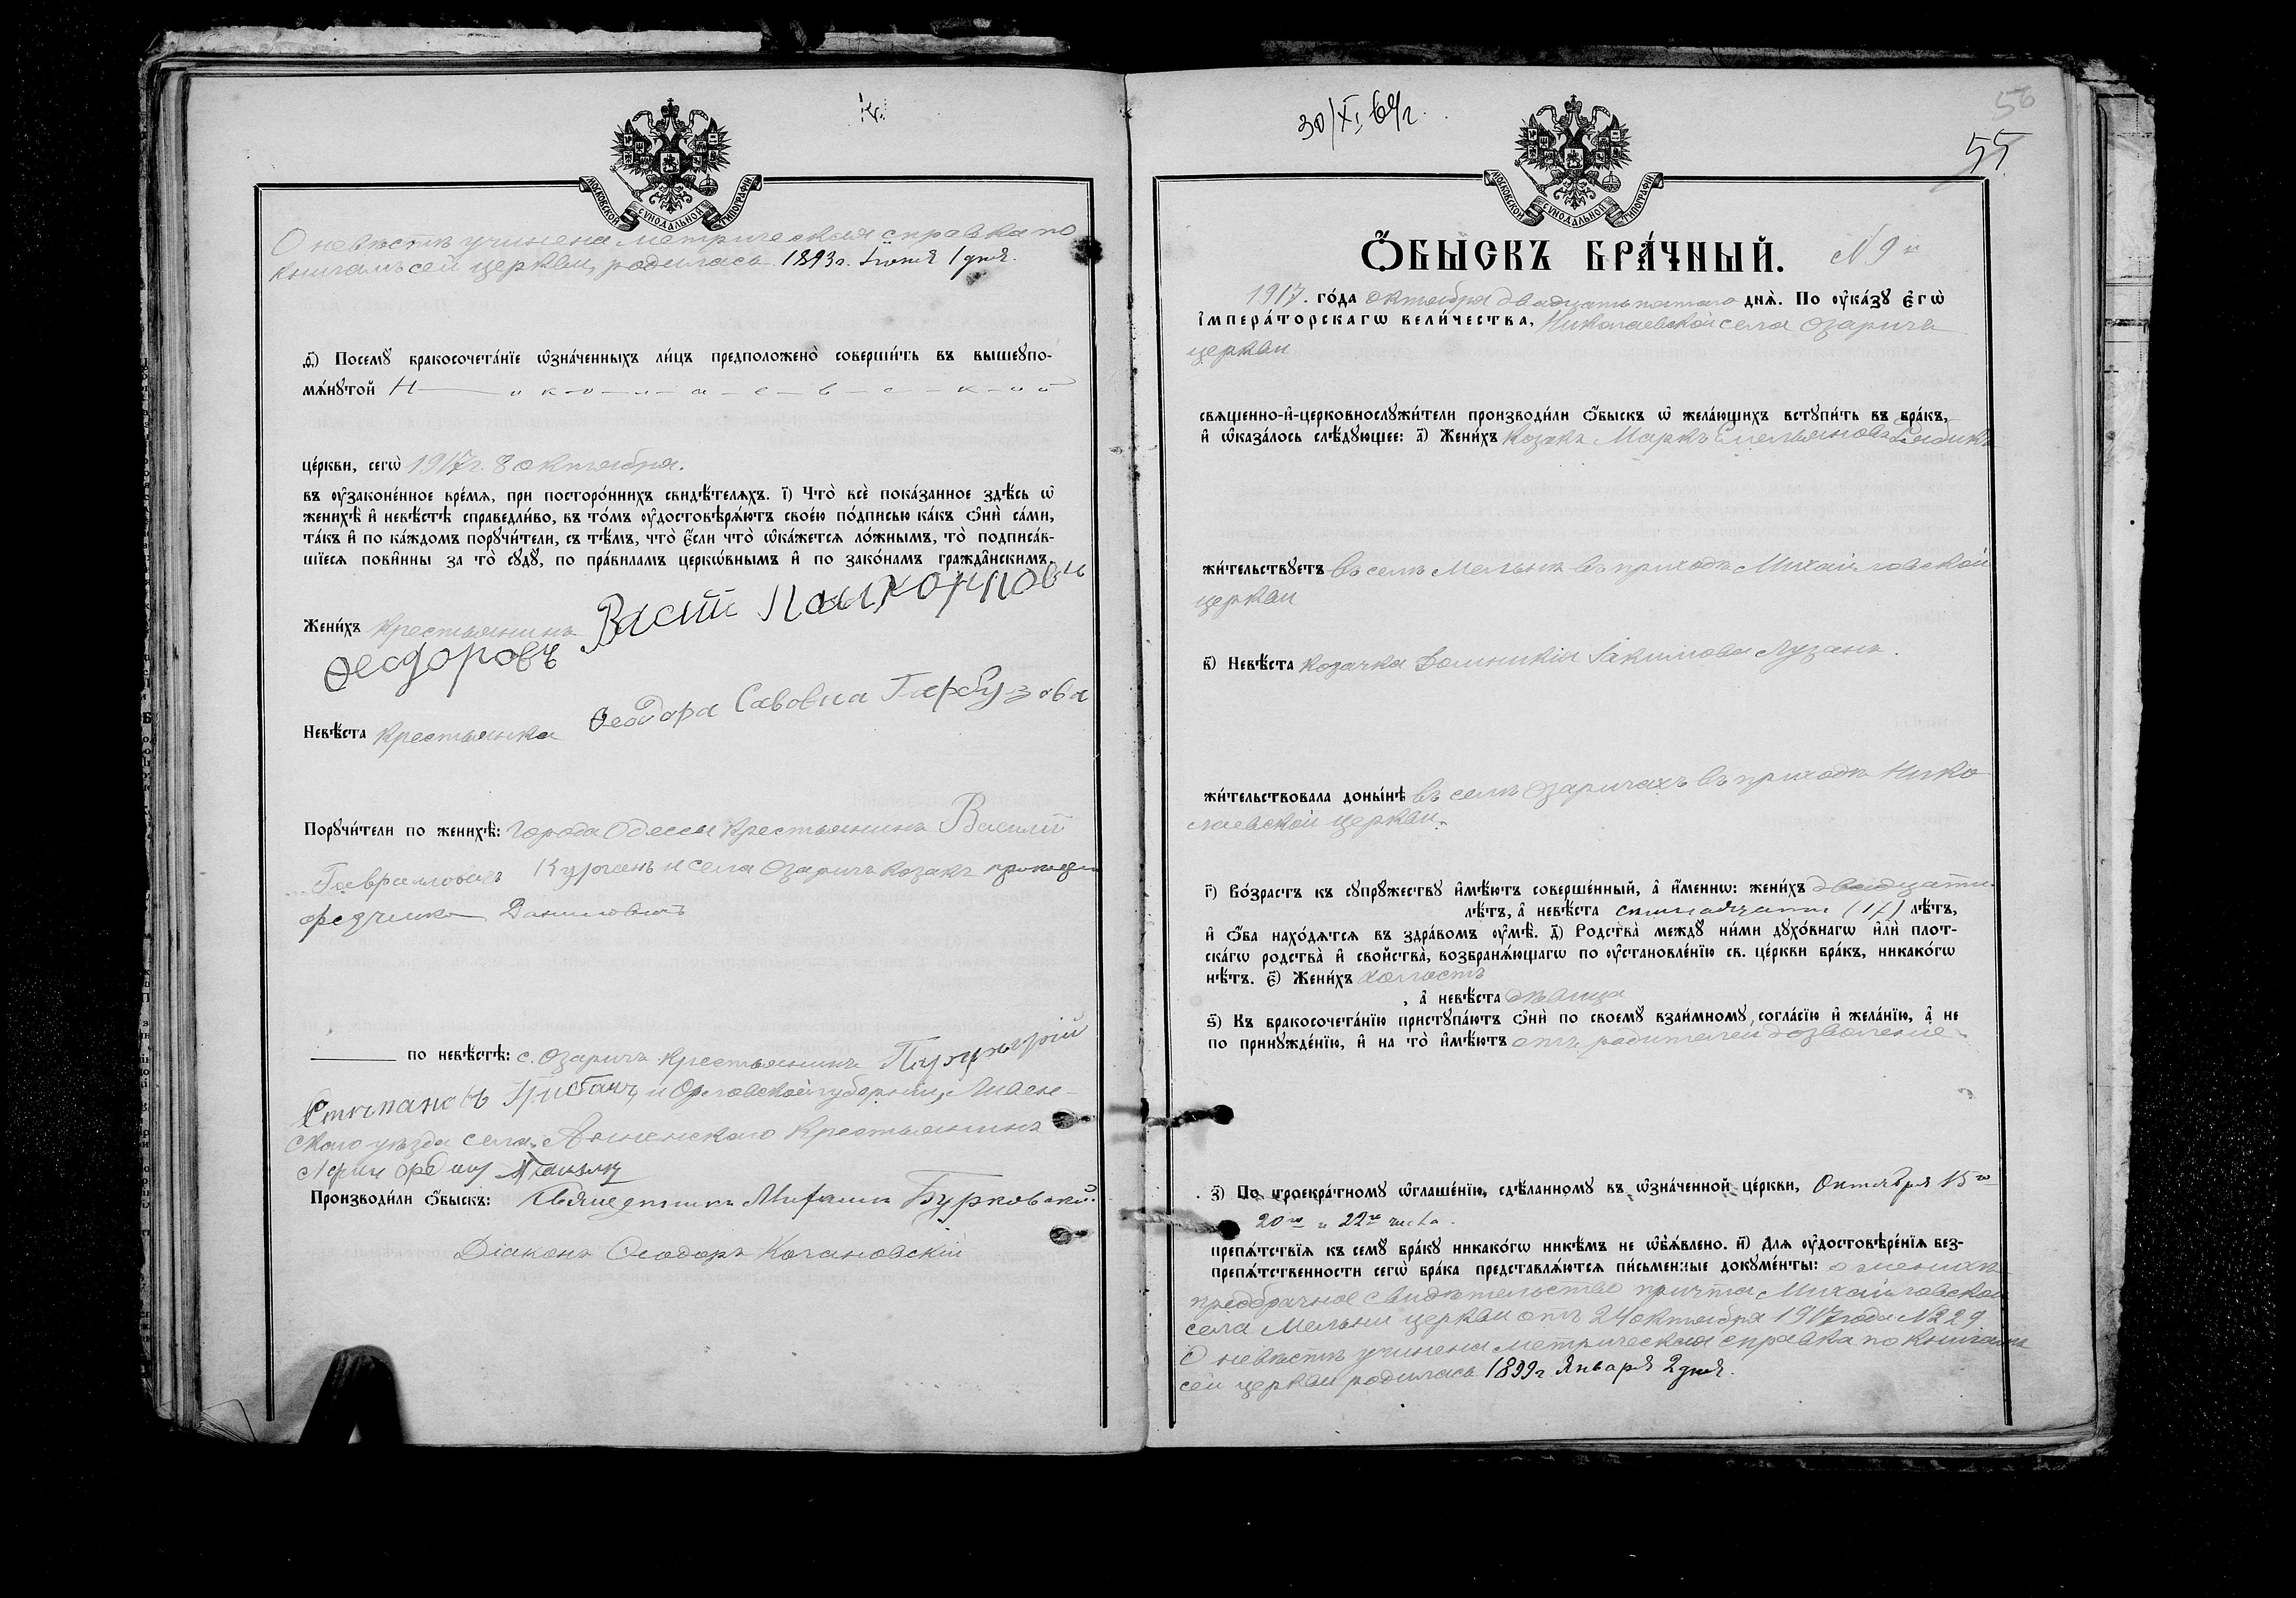 МОСКОВСКОЙ СѴНОДАЛЬНОЙ ТИПОГРАФІИ
О невѣстѣ учинена метрическая справка по
книгамъ сей церкви, родилась 1893 г. Iюня 1 дня.
д҃і) Посемꙋ̀ бракосочета́нїе ѡ҆зна́ченныхъ ли́цъ предположено̀ соверши́ть въ вышеꙋпо-
мѧ́нꙋтой Н-и-к-о-л-а-е-в-с-к-о-й
це́ркви, сегѡ̀ 1917 г. 8 октября.
въ ᲂу҆законе́нное вре́мѧ, при посторо́ннихъ свидѣ́телѧхъ. і҃) Что̀ всѐ пока́занное здѣ́сь ѡ҆
женихѣ̀ и҆ невѣ́стѣ справедли́во, въ то́мъ ᲂу҆достовѣрѧ́ютъ свое́ю по́дписью ка́къ ѻ҆нѝ са́ми,
та́къ и҆ по ка́ждомъ порꙋчи́тели, съ тѣ́мъ, что̀ є҆́сли что̀ ѡ҆ка́жется ло́жнымъ, то̀ подписа́в-
шїеся пови́нны за то̀ сꙋдꙋ̀, по пра́виламъ церкѡ́внымъ и҆ по зако́намъ гражда̑нскимъ.
Жени́хъ Крестьянинъ
Ѳеодоровъ
Невѣ́ста Крестьянка Ѳеодора Савовна Гарбузова
Порꙋчи́тели по женихѣ̀: города Одессы крестьянинъ Василій
Гавриловичъ и села Озаричъ козакъ
Даниловичъ
по невѣ́стѣ: с. Озаричъ крестьянинъ
и Орловской губерніи, Ливен-
скаго уѣзда села крестьянинъ
Производи́ли ѻ҆́быскъ: Священникъ Михаилъ Бурковскій
Діаконъ Ѳеодоръ Кочановскій
30/XI 64 г.
56
55
МОСКОВСКОЙ СѴНОДАЛЬНОЙ ТИПОГРАФІИ
Ѻ҆БЫ́СКЪ БРА́ЧНЫЙ. N 9й
1917. го́да октября двадцать пятаго днѧ̀. По ᲂу҆ка́зꙋ є҆гѡ̀
і҆мпера́торскагѡ вели́чества, Николаевской села Озаричъ
церкви
свѧще́нно-и҆-церковнослꙋжи́тели производи́ли ѻ҆́быскъ ѡ҆ жела́ющихъ встꙋпи́ть въ бра́къ,
и҆ ѡ҆каза́лось слѣ́дꙋющее: а҃) Жени́хъ козакъ Маркъ Емельяновъ
жи́тельствꙋетъ въ селѣ Мельнѣ въ приходѣ Михайловской
церкви
в҃) Невѣ́ста козачка Домникія Іакимова Лузанъ.
жи́тельствовала доны́нѣ въ селѣ Озаричахъ въ приходѣ Нико
лаевской церкви.
г҃) Во́зрастъ къ сꙋпрꙋ́жествꙋ и҆мѣ́ютъ соверше́нный, а҆ и҆́меннѡ: жени́хъ двадцати
лѣ́тъ, а҆ невѣ́ста семнадцати (17) лѣ́тъ,
и҆ ѻ҆́ба нахо́дѧтся въ здра́вомъ ᲂу҆мѣ̀. д҃) Родства̀ междꙋ ни́ми дꙋхо́внагѡ и҆лѝ плот-
ска́гѡ родства̀ и҆ свойства̀, возбранѧ́ющагѡ по ᲂу҆становле́нїю св. це́ркви бра́къ, никако́гѡ
нѣ́тъ. є҃) Жени́хъ холостъ
, а҆ невѣ́ста дѣвица
ѕ҃) Къ бракосочета́нїю пристꙋпа́ютъ ѻ҆нѝ по своемꙋ̀ взаи́мномꙋ согла́сїю и҆ жела́нїю, а҆ не
по принꙋжде́нїю, и҆ на то̀ и҆мѣ́ютъ отъ родителей дозволеніе.
з҃) По троекра́тномꙋ ѡ҆глаше́нїю, сдѣ́ланномꙋ въ ѡ҆зна́ченной це́ркви, Октября 15го
20го и 22го числа.
препѧ́тствїѧ къ семꙋ̀ бра́кꙋ никако́гѡ никѣ́мъ не ѡ҆б̾ѧ́влено. и҃) Для ᲂу҆достовѣре́нїѧ без-
препѧ́тственности сегѡ̀ бра́ка представлѧ́ются пи́сьменные докꙋме́нты: о женихѣ
предбрачное свидѣтельство причта Михайловской
села Мельни церкви отъ 24 октября 1917 года N 229.
О невѣстѣ учинена метрическая справка по книгамъ
сей церкви родилась 1899 г. Января 2 дня.